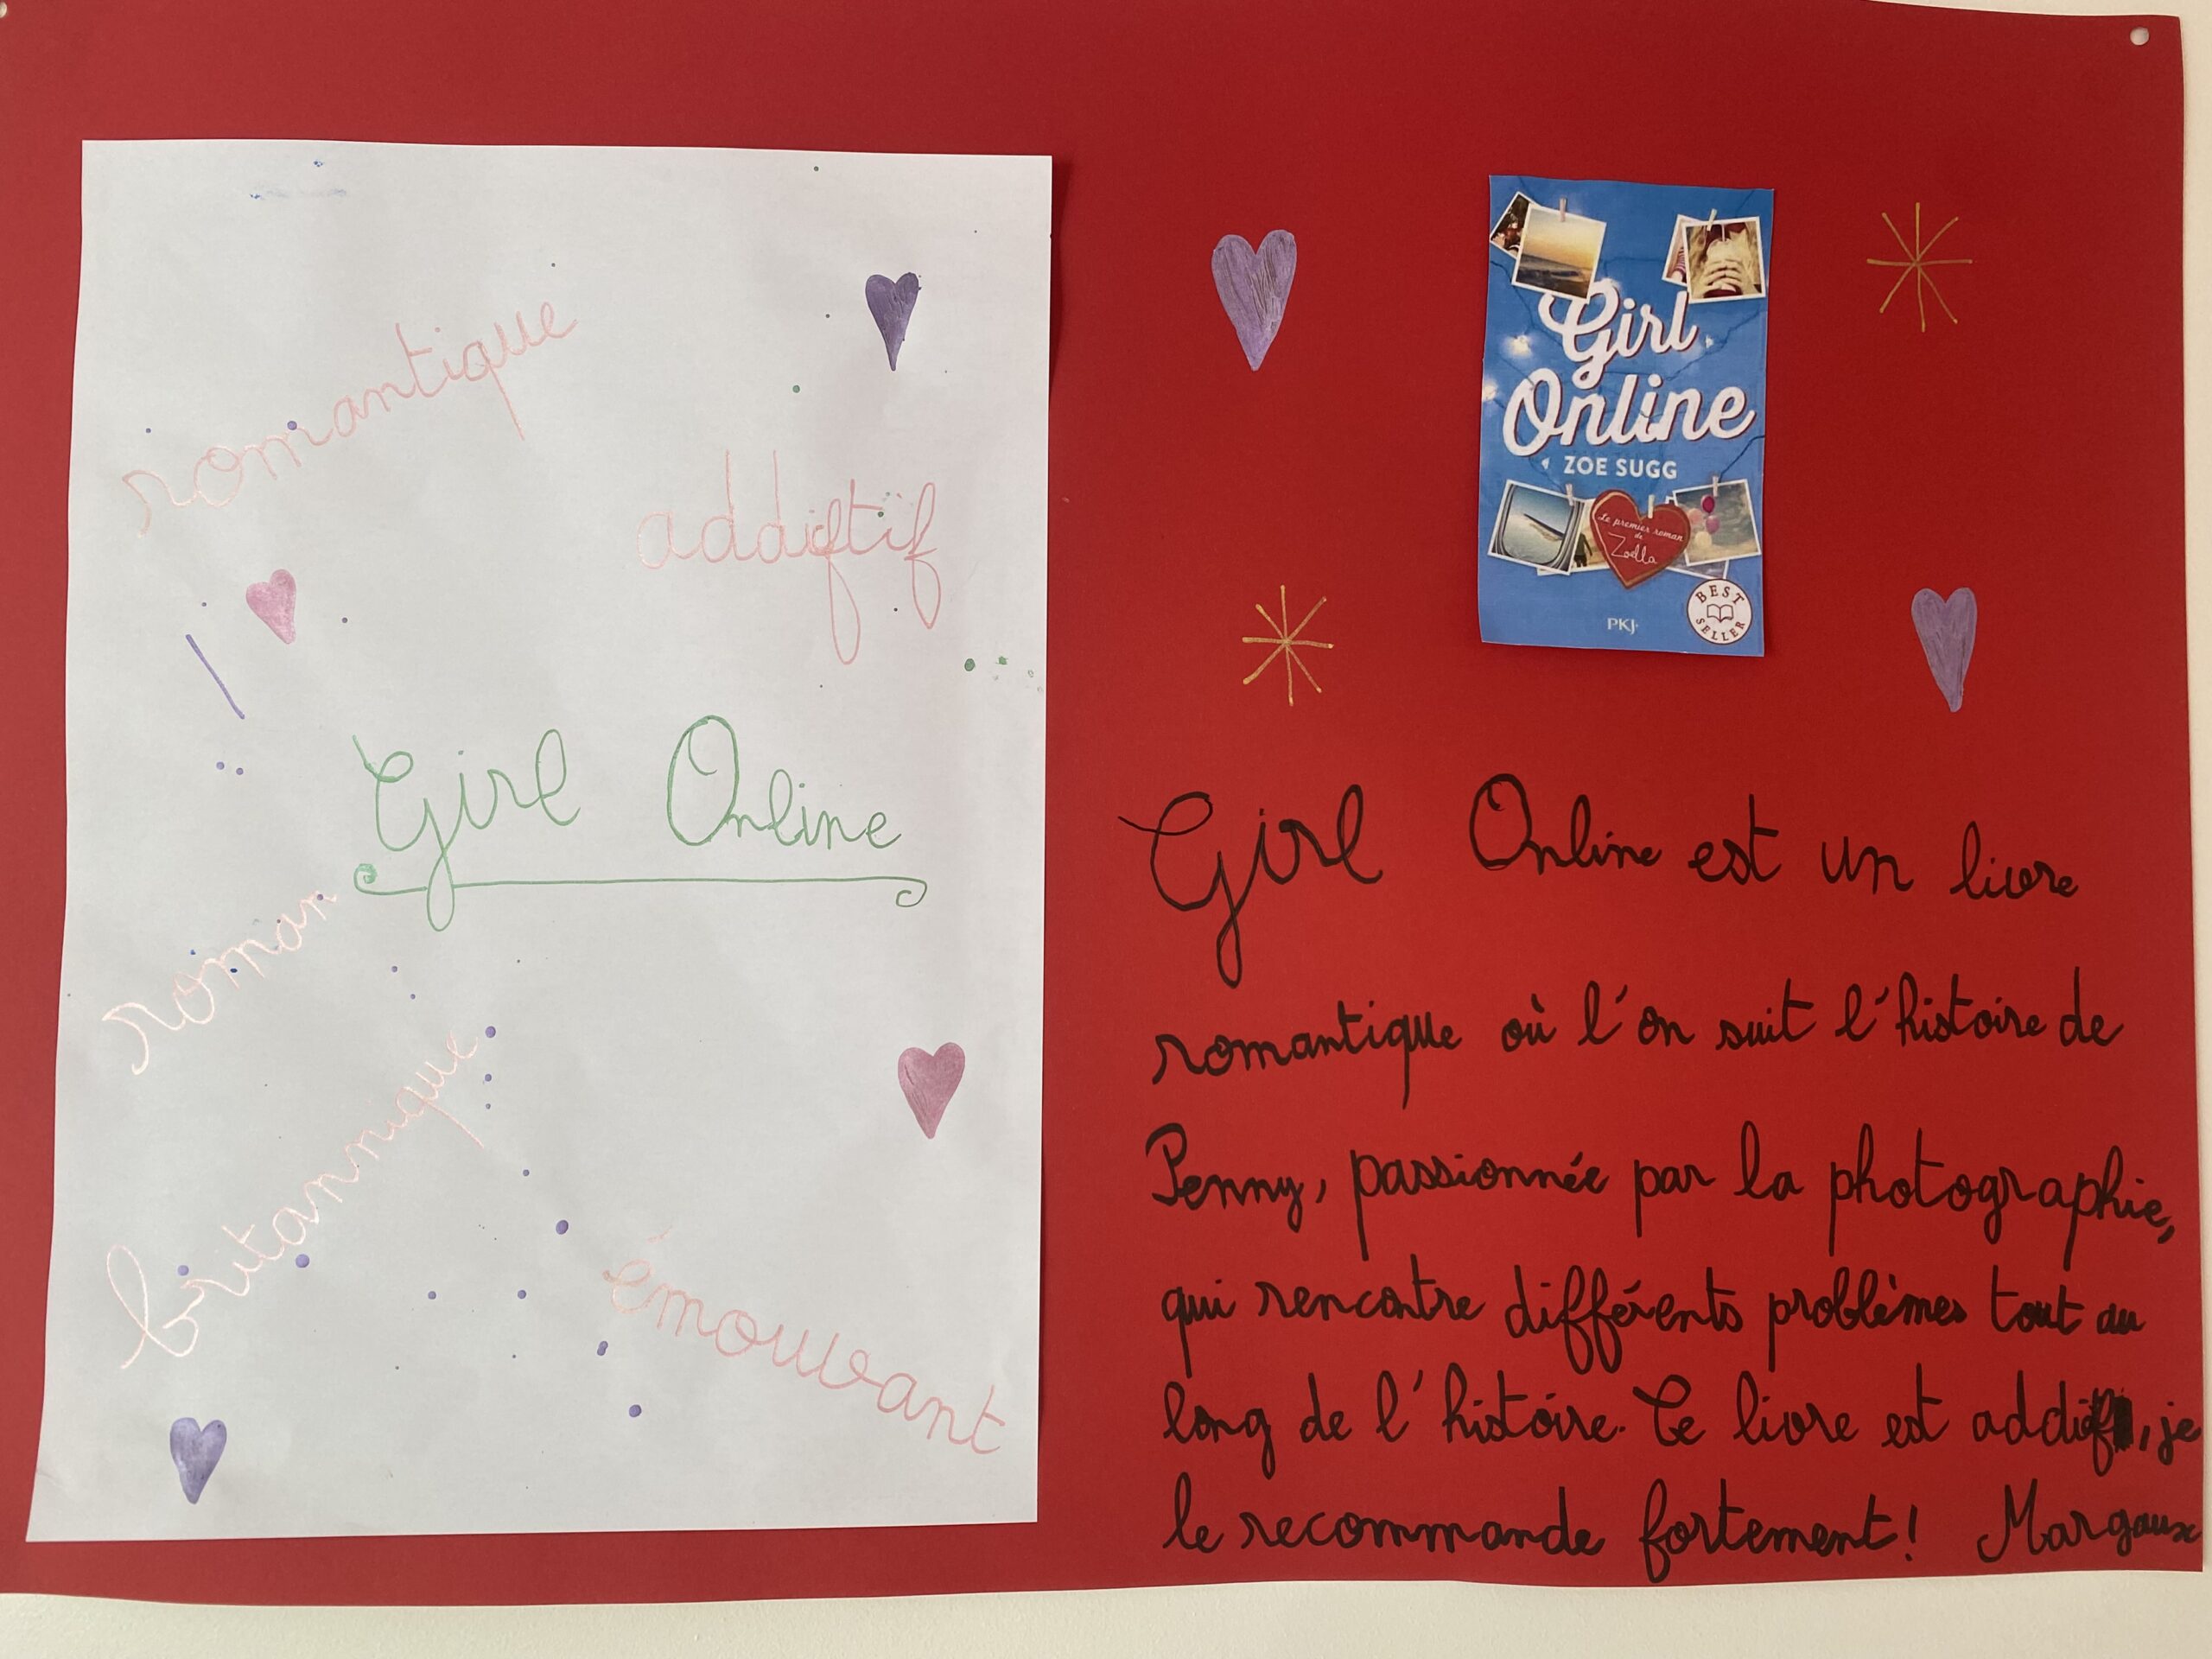 romantique
addictif
Girl Online
roman
britannique
émouvant
Girl
Online
ZOE SUGG
Le premier roman
de
Zoella
BEST
SELLER
PKJ.
Girl Online est un livre
romantique où l'on suit l'histoire de
Penny, passionnée par la photographie,
qui rencontre différents problèmes tout au
long de l'histoire. Ce livre est addif, je
le recommande fortement! Margaux